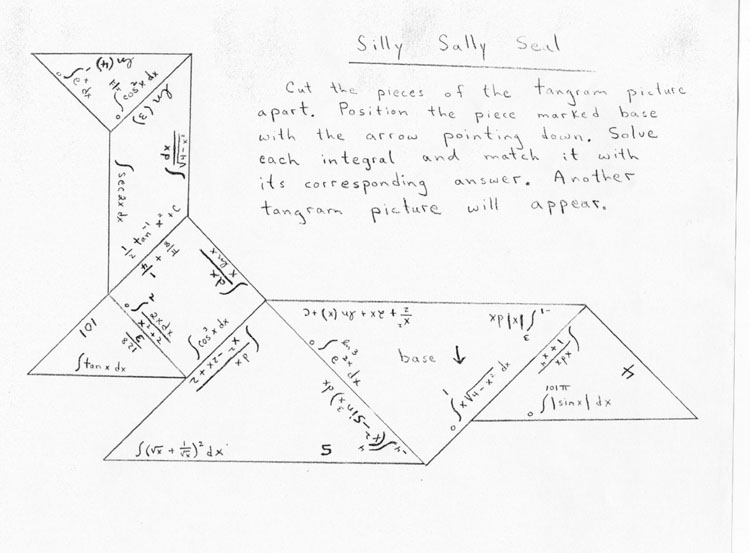 Silly Sally Seal
Cut the pieces of the tangram picture
apart. Position the piece marked base
with the arrow pointing down. Solve
each integral and match it with
its corresponding answer. Another
tangram picture will appear.
ln (4)
ln (3)
∫ dx/√(4-x²)
∫ sec 2x dx
½ tan⁻¹ x² + C
¼ + π/8
∫ dx/(x ln x)
101
∫₀² 2x dx/(x²+2)
128/3
∫ tan x dx
∫ cos³x dx
∫ dx/(x²-2x+2)
x²/2 + 2x + ln (x) + C
∫₋₁³ |x| dx
∫₀^{ln 3} e^{2x} dx
base ↓
∫₀¹ x√(4-x²) dx
∫ xdx/(x⁴+1)
4
∫₀^{101π} |sin x| dx
∫(√x + 1/√x)² dx
5